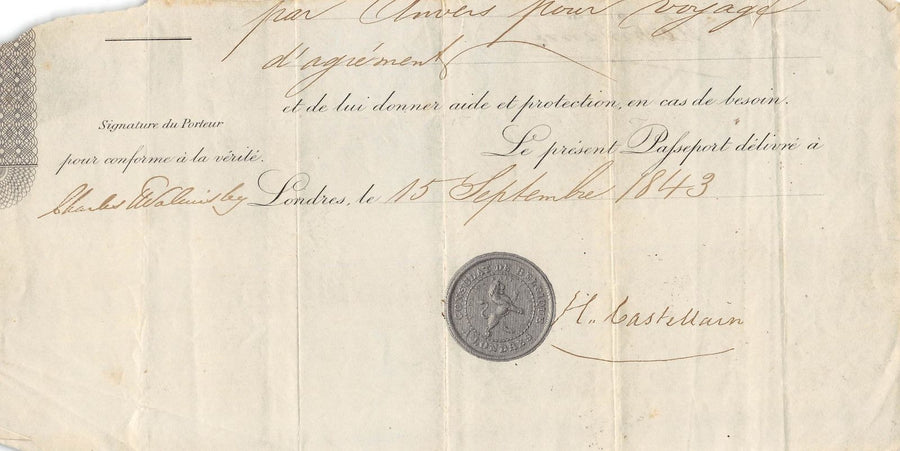 par Anvers pour voyage
d'agrément
et de lui donner aide et protection, en cas de besoin.
Signature du Porteur
Le présent Passeport délivré à
pour conforme à la vérité.
Charles
Londres, le 15 Septembre 1843
CONSULAT DE BELGIQUE
À LONDRES
H. Castellain